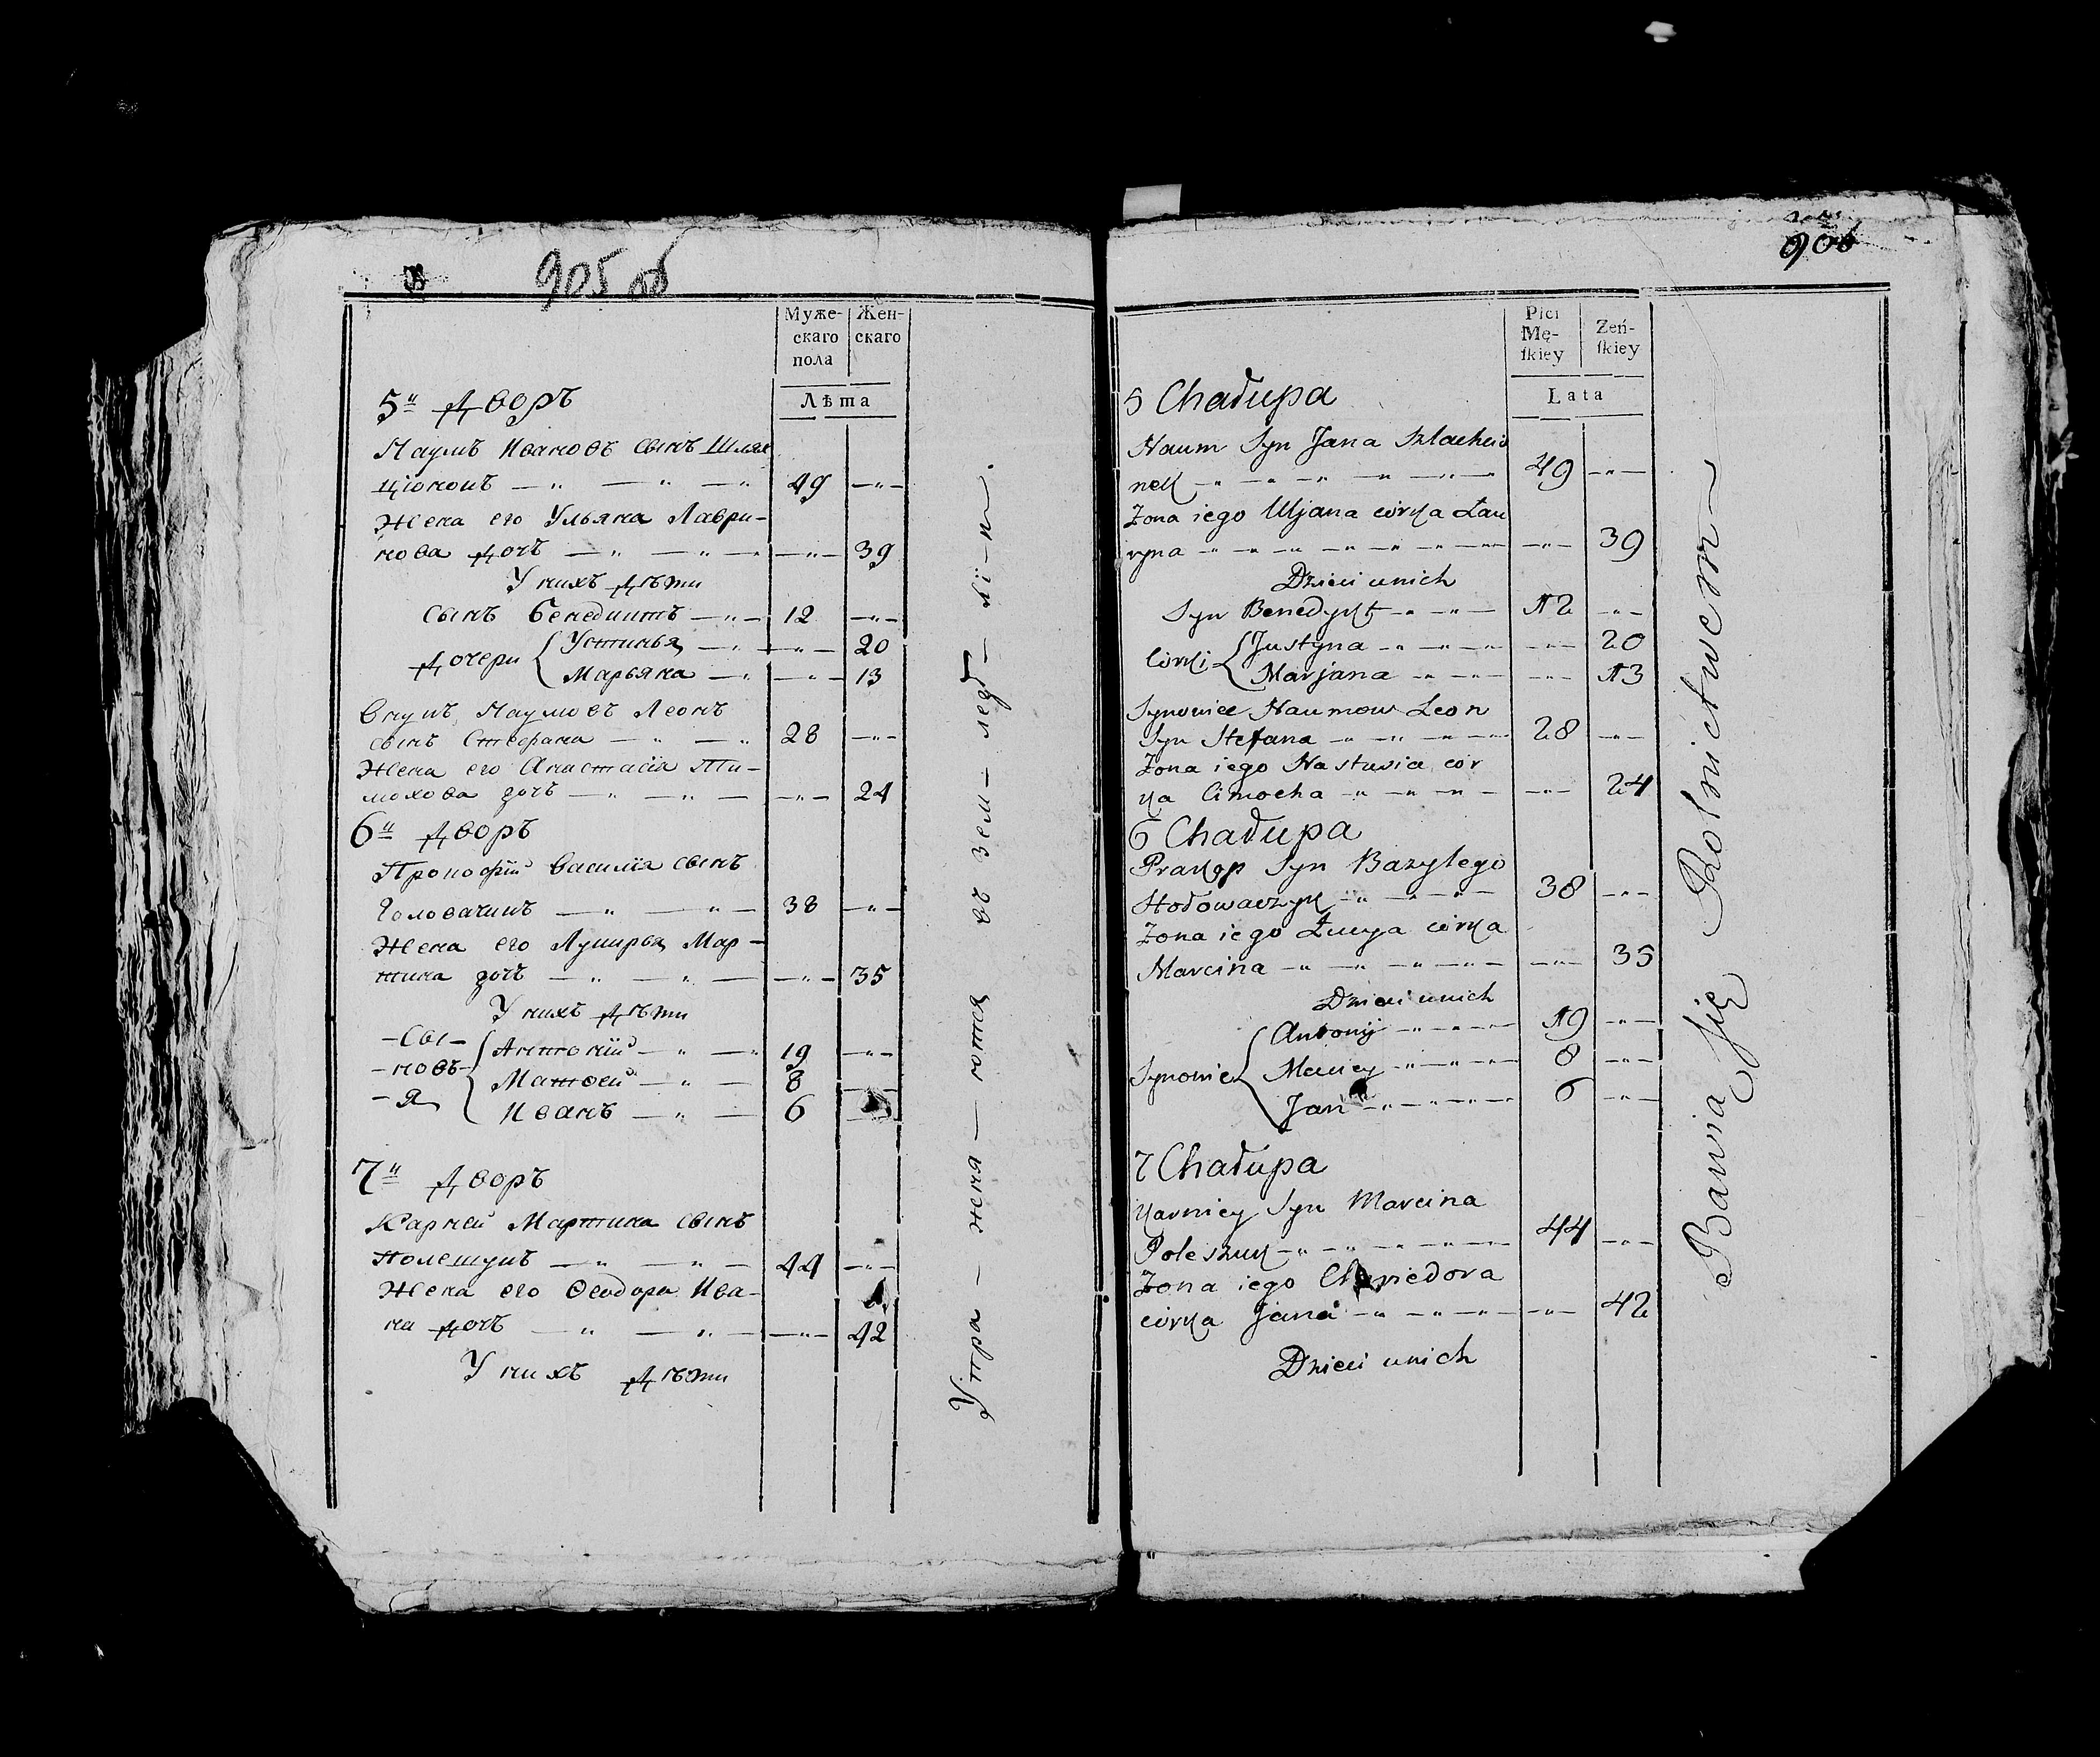 905 об
Муже- Жен-
скаго скаго
пола
Лѣта
5й Дворъ
Наумъ Ивановъ сынъ Шлях
цюкокъ 49
Жена его Ульяна Лаври-
нова дочъ 39
У нихъ Дѣти
Сынъ Бенедиктъ 12
Дочери Устинья 20
Марьяна 13
Внукъ Наумовъ Леонъ
сынъ Стефана 28
Жена его Анастасія Ти-
мохова дочъ 24
6й Дворъ
Прокофій Василія сынъ
Головачикъ 38
Жена его Лукирья Мар-
тина дочъ 35
У нихъ Дѣти
Сы-
новь-
я
Антоній 19
Матвей 8
Иванъ 6
7й Дворъ
Карней Мартина сынъ
Полешукъ 44
Жена его Ѳеодора Ива-
на дочъ 42
У нихъ Дѣти
906
Płci Żeń-
Mę- skiey
skiey
Lata
5 Chałupa
Naum Syn Jana Szlachciu
nek 49
Żona iego Uljana córka Łau
ryna 39
Dzieci u nich
Syn Benedykt 12
Córki Justyna 20
Marjana 13
Synowiec Naumow Leon
Syn Stefana 28
Żona iego Nastusia cór
ka Cimocha 24
6 Chałupa
Prakop Syn Bazylego
Hołowaczyk 38
Żona iego Łucya córka
Marcina 35
Dzieci u nich
Synowie Antonij 19
Maciey 8
Jan 6
7 Chałupa
Karniey Syn Marcina
Poleszuk 44
Żona iego Chwiedora
córka Jana 42
Dzieci u nich
Bawią się Rolnictwem